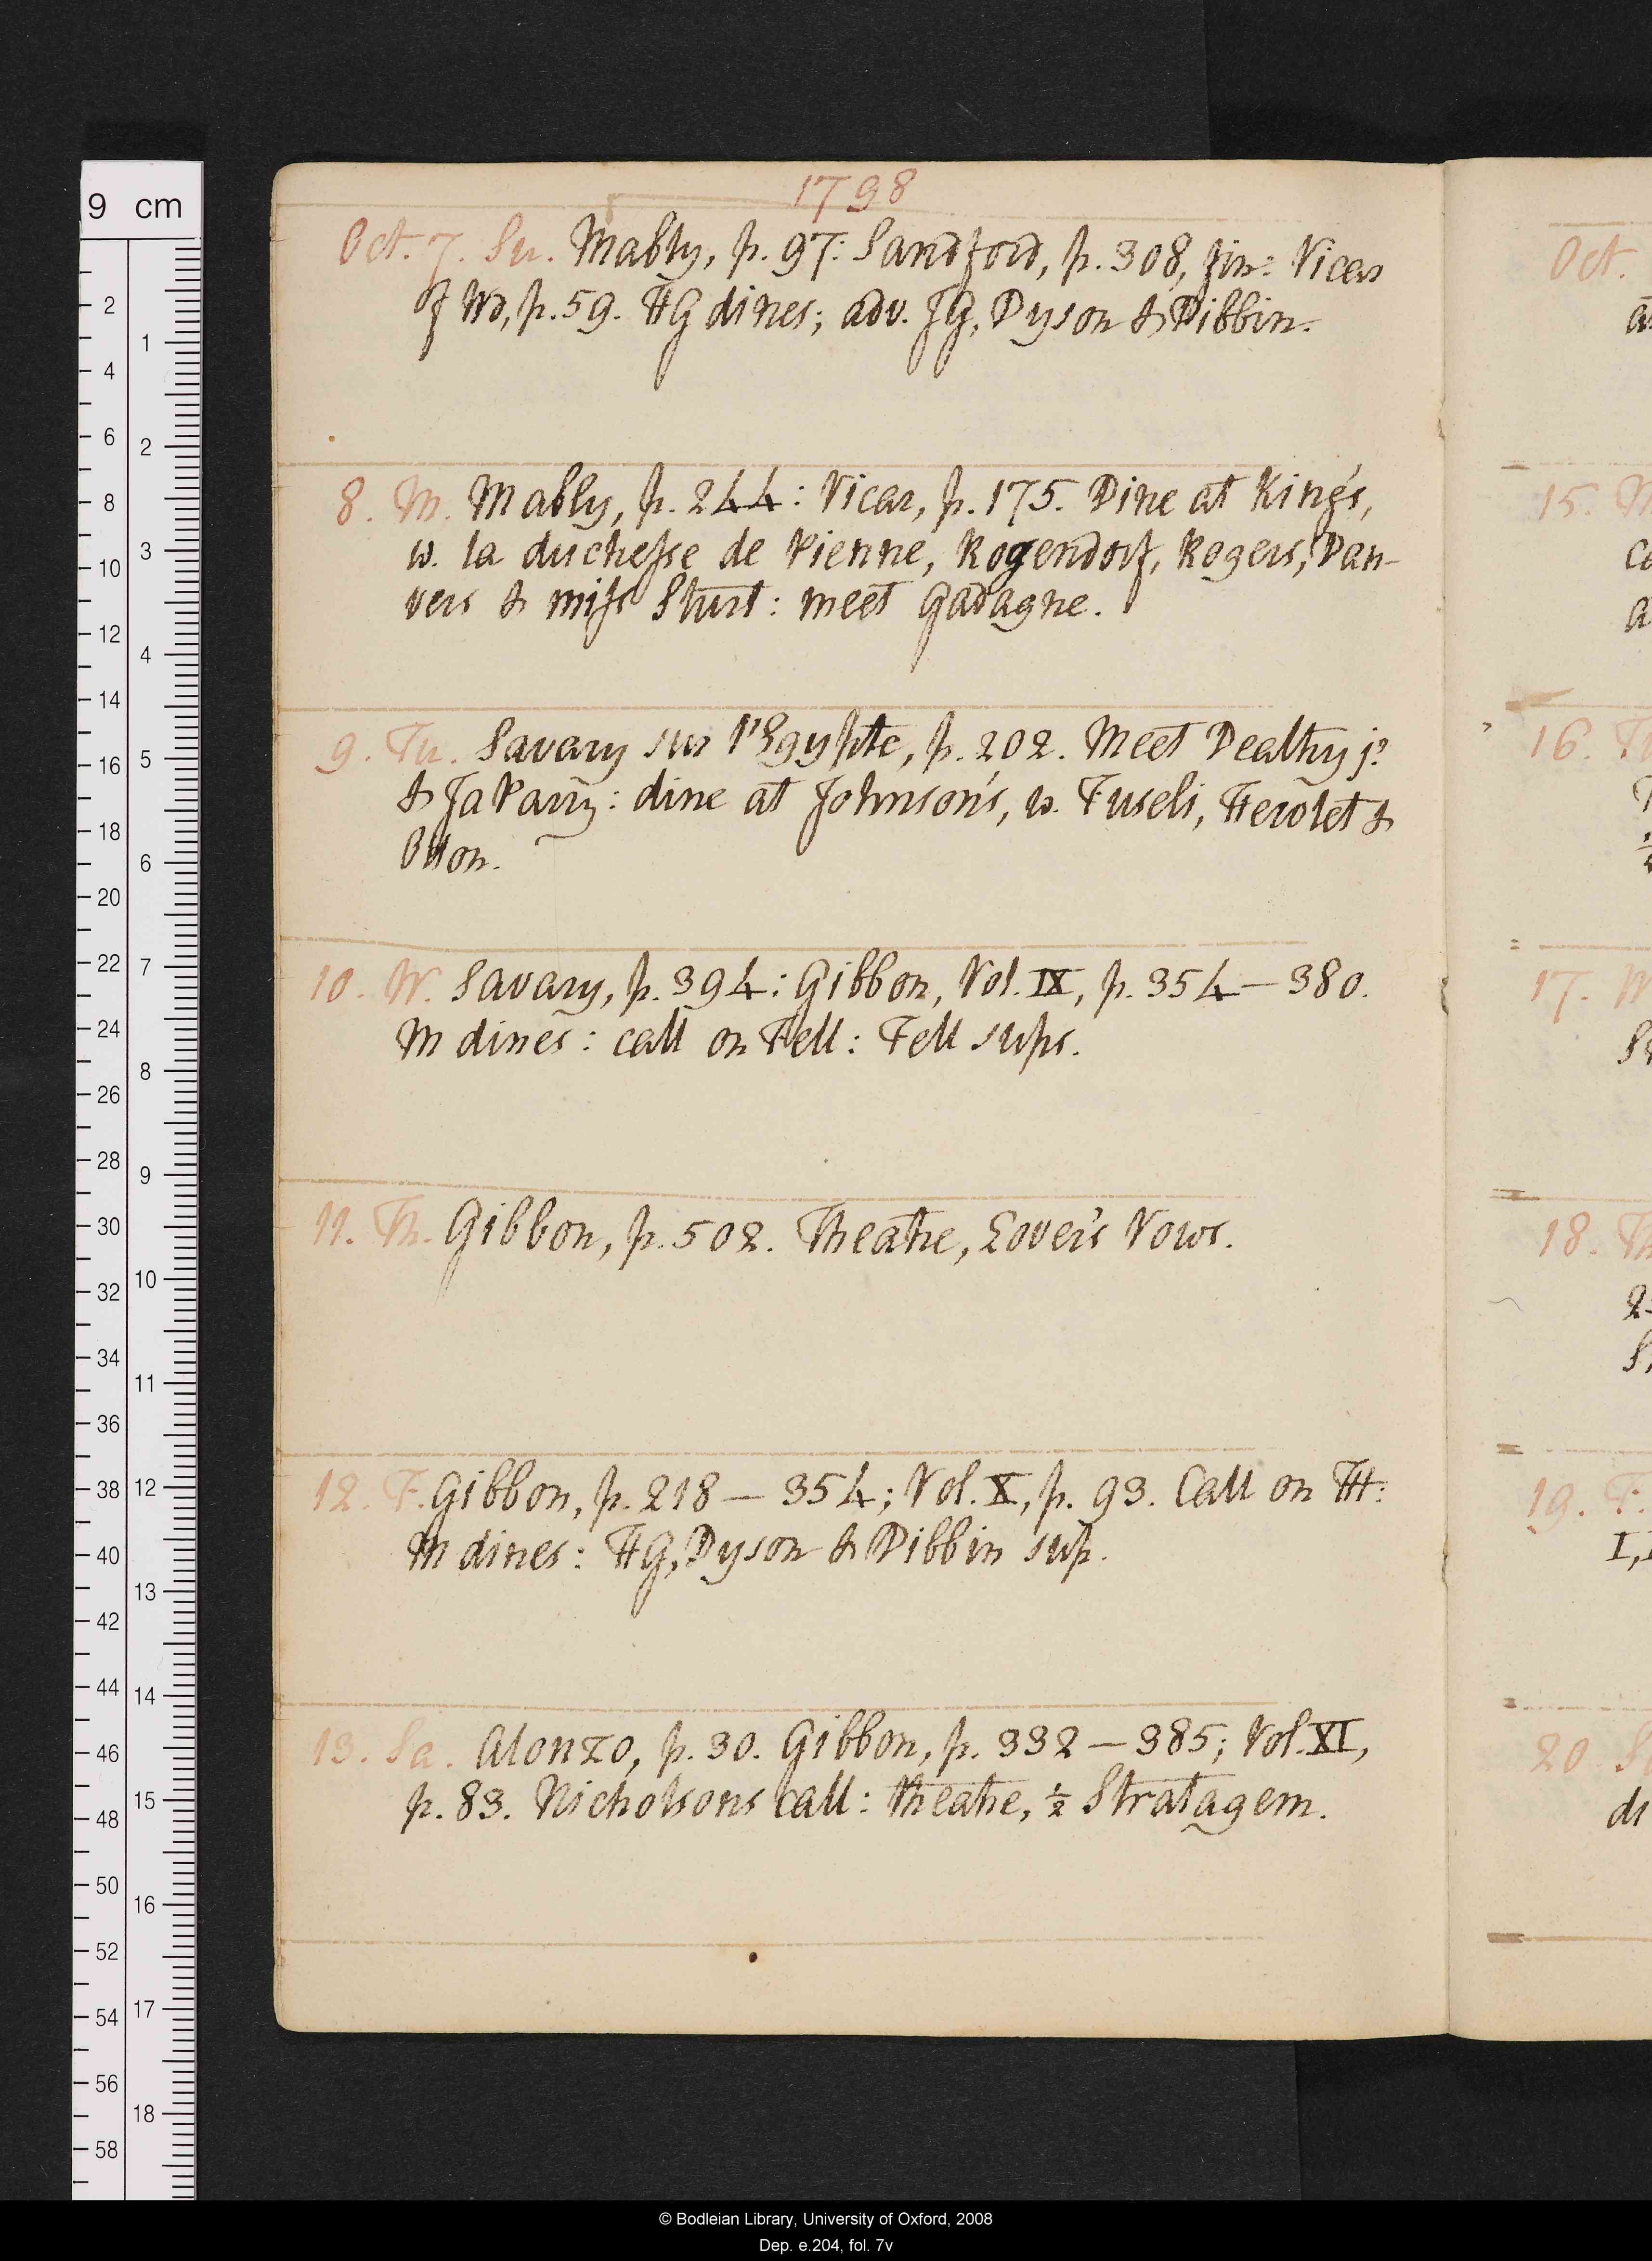 1798
Oct. 7. Su. Mably, p. 97: Sandford, p. 308, fin: Vicar
of Wd, p. 59. HG dines; adv. JG, Dyson & Dibbin.
8. M. Mably, p. 244: Vicar, p. 175. Dine at King's,
w. la duchesse de Pienne, Rogendorf, Rogers, Dan-
vers & miss Sturt: meet Gadagne.
9. Tu. Savary sur l'Egypte, p. 202. Meet Dealtry jr
& Ja Parry: dine at Johnson's, w. Fuseli, &
10. W. Savary, p. 394: Gibbon, Vol. IX, p. 354—380.
M dines: call on Fell: Fell sups.
11. Th. Gibbon, p. 502. Theatre, Lover's Vows.
12. F. Gibbon, p. 218—354; Vol. X, p. 93. Call on TH:
M dines: HG, Dyson & Dibbin sup.
13. Sa. Alonzo, p. 30. Gibbon, p. 332—385; Vol. XI,
p. 83. Nicholsons call: theatre, ½ Stratagem.
Oct.
15.
16.
17.
18.
19. F.
20
9 cm
2 4 6 8 10 12 14 16 18 20 22 24 26 28 30 32 34 36 38 40 42 44 46 48 50 52 54 56 58
1 2 3 4 5 6 7 8 9 10 11 12 13 14 15 16 17 18
© Bodleian Library, University of Oxford, 2008
Dep. e.204, fol. 7v